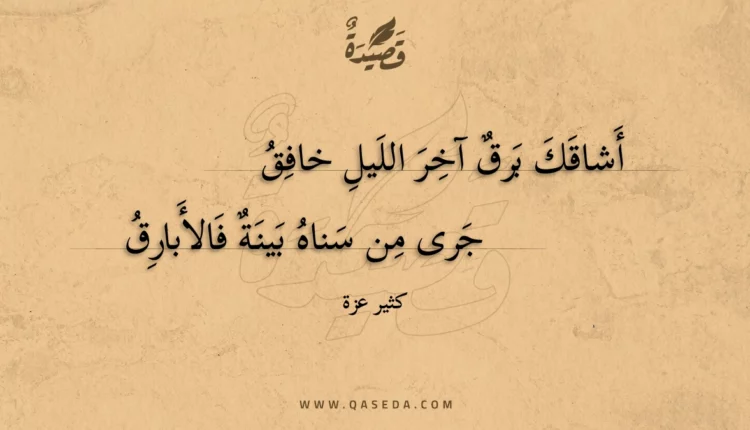 قَصِيْدَةٌ
أَشاقَكَ بَرقٌ آخِرَ اللَيلِ خافِقُ
جَرى مِن سَناهُ بَينَةٌ فَالأَبارِقُ
كثير عزة
WWW.QASEDA.COM